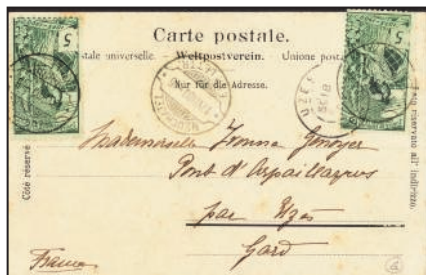 Carte postale.
tale universelle. Weltpostverein. Unione post
Nur für die Adresse.
Côté réservé
lato riservato all' indirizzo.
5
5
UZES
Mademoiselle Yvonne
Pont d'Arpaillargues
par Uzès
Gard
France